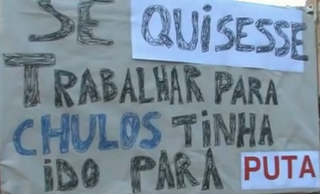 SE QUISESSE
TRABALHAR PARA
CHULOS TINHA
IDO PARA PUTA